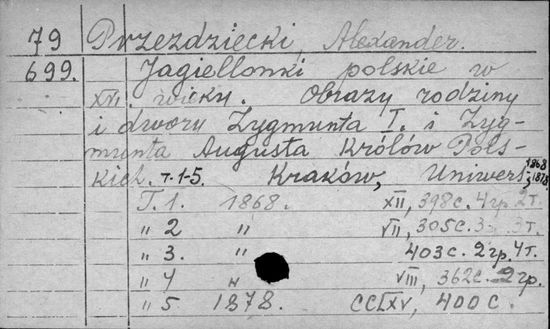 79 Przezdziecki, Alexander.
699. Jagiellonki polskie w
XVI. wieku. Obrazy rodziny
i dworu Zygmunta I. i Zyg-
munta Augusta Królów Pols-
kich. т. 1-5. Kraków, Uniwers, 1868-1878.
T. 1. 1868. XII, 398 с. 4 гр. 2 т.
" 2 " VII, 305 с. 3 т.
" 3. " 403 с. 2 гр. 4 т.
" 4 " VIII, 362 с. 2 гр.
" 5. 1878. CCLXV, 400 с.